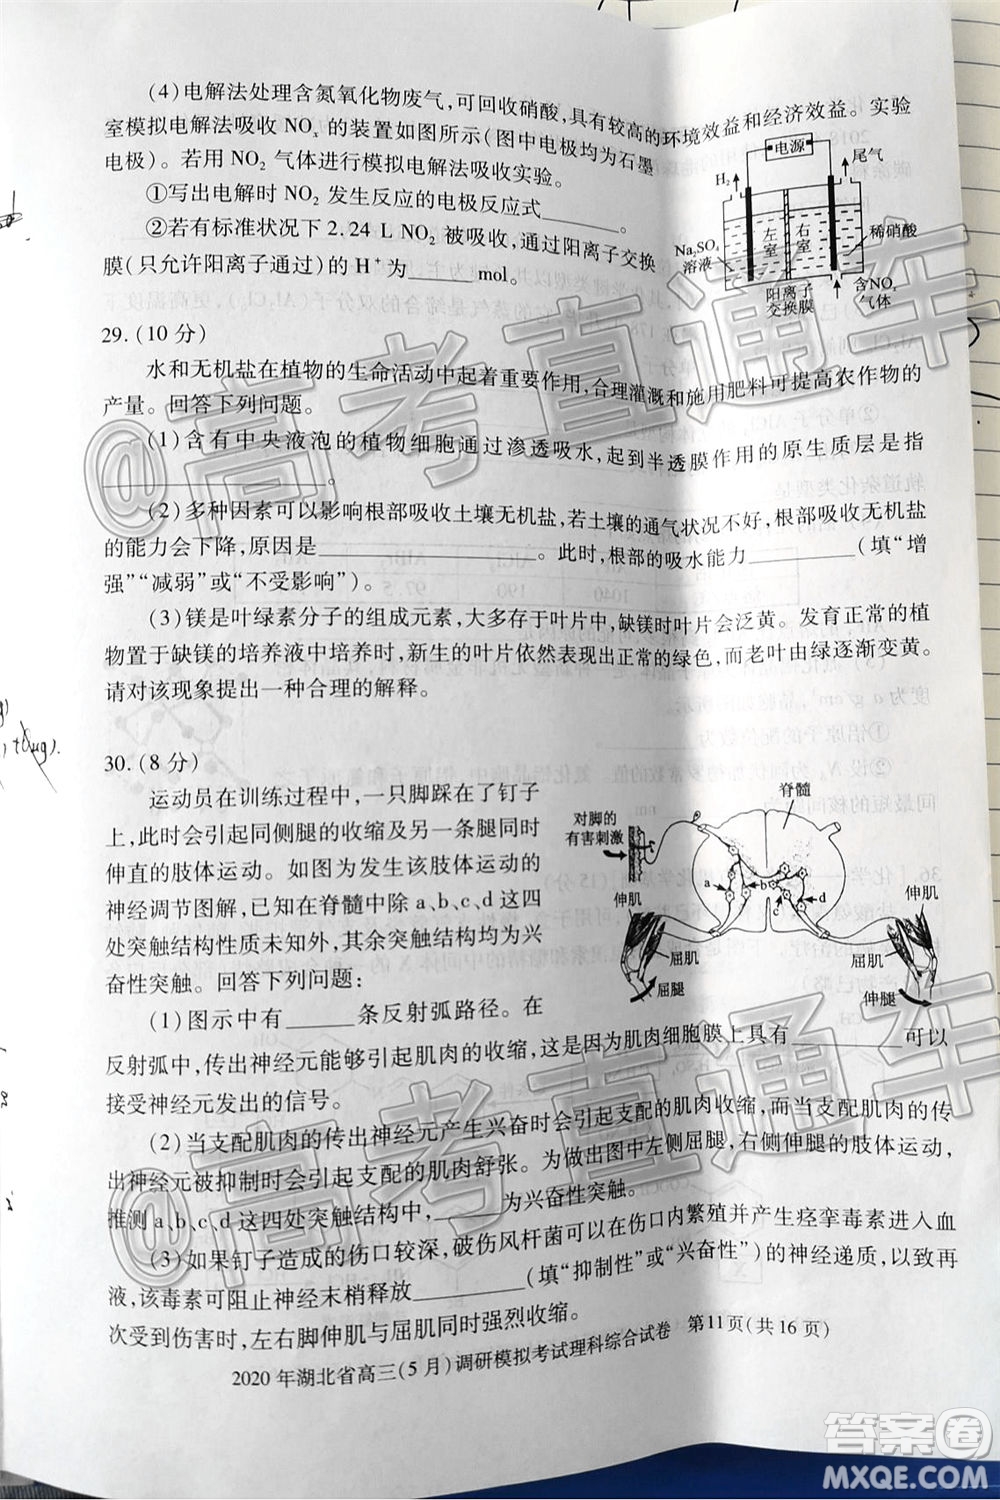 (4)电解法处理含氮氧化物废气,可回收硝酸,具有较高的环境效益和经济效益。实验
室模拟电解法吸收 NOx 的装置如图所示(图中电极均为石墨
电极)。若用 NO2 气体进行模拟电解法吸收实验。
①写出电解时 NO2 发生反应的电极反应式________。
②若有标准状况下 2.24 L NO2 被吸收,通过阳离子交换
膜(只允许阳离子通过)的 H+ 为______mol。
电源
H2
尾气
左室
右室
Na2SO4
溶液
稀硝酸
阳离子
交换膜
含NOx
气体
29.(10 分)
水和无机盐在植物的生命活动中起着重要作用,合理灌溉和施用肥料可提高农作物的
产量。回答下列问题。
(1)含有中央液泡的植物细胞通过渗透吸水,起到半透膜作用的原生质层是指
________________。
(2)多种因素可以影响根部吸收土壤无机盐,若土壤的通气状况不好,根部吸收无机盐
的能力会下降,原因是________________。此时,根部的吸水能力________(填“增
强”“减弱”或“不受影响”)。
(3)镁是叶绿素分子的组成元素,大多存在于叶片中,缺镁时叶片会泛黄。发育正常的植
物置于缺镁的培养液中培养时,新生的叶片依然表现出正常的绿色,而老叶由绿逐渐变黄。
请对该现象提出一种合理的解释。
30.(8 分)
运动员在训练过程中,一只脚踩在了钉子
上,此时会引起同侧腿的收缩及另一条腿同时
伸直的肢体运动。如图为发生该肢体运动的
神经调节图解,已知在脊髓中除 a、b、c、d 这四
处突触结构性质未知外,其余突触结构均为兴
奋性突触。回答下列问题:
脊髓
对脚的
有害刺激
a
b
c
d
伸肌
屈肌
屈腿
伸肌
屈肌
伸腿
(1)图示中有______条反射弧路径。在
反射弧中,传出神经元能够引起肌肉的收缩,这是因为肌肉细胞膜上具有________可以
接受神经元发出的信号。
(2)当支配肌肉的传出神经元产生兴奋时会引起支配的肌肉收缩,而当支配肌肉的传
出神经元被抑制时会引起支配的肌肉舒张。为做出图中左侧屈腿,右侧伸腿的肢体运动,
推测 a、b、c、d 这四处突触结构中,______为兴奋性突触。
(3)如果钉子造成的伤口较深,破伤风杆菌可以在伤口内繁殖并产生痉挛毒素进入血
液,该毒素可阻止神经末梢释放________(填“抑制性”或“兴奋性”)的神经递质,以致再一
次受到伤害时,左右脚伸肌与屈肌同时强烈收缩。
2020 年湖北省高三(5 月)调研模拟考试理科综合试卷 第11页(共 16 页)
@高考直通车
@高考直通车
答案圈
MXQE.COM